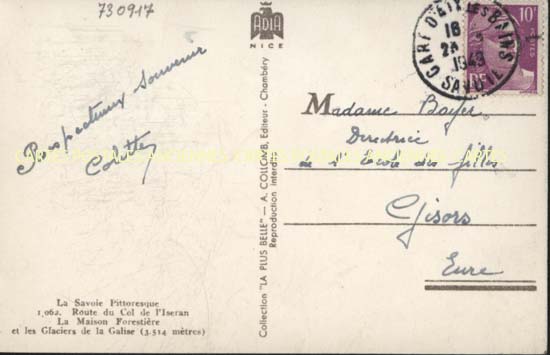 730917
Respectueux souvenir
Colette
La Savoie Pittoresque
1.062. Route du Col de l'Iseran
La Maison Forestière
et les Glaciers de la Galise (3.514 mètres)
ADIA
NICE
Collection "LA PLUS BELLE" — A. COLLOMB, Editeur - Chambéry
Reproduction interdite
GARE D'AIX LES BAINS
18
1949
SAVOIE
10F
Madame Boyer
Directrice
de l'école des filles
Gisors
Eure